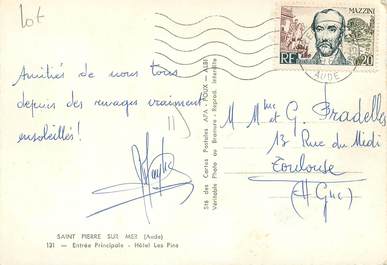 Lot
MAZZINI
RF
0,20
AUDE
Amitiés de nous tous
depuis des rivages vraiment
ensoleillés!
Sté des Cartes Postales APA - POUX - ALBI
Véritable Photo au Bromure - Reprod. interdite
M. Mme et G. Pradelles
13 Rue du Midi
Toulouse
(H Gne)
SAINT PIERRE SUR MER (Aude)
131 — Entrée Principale - Hôtel Les Pins